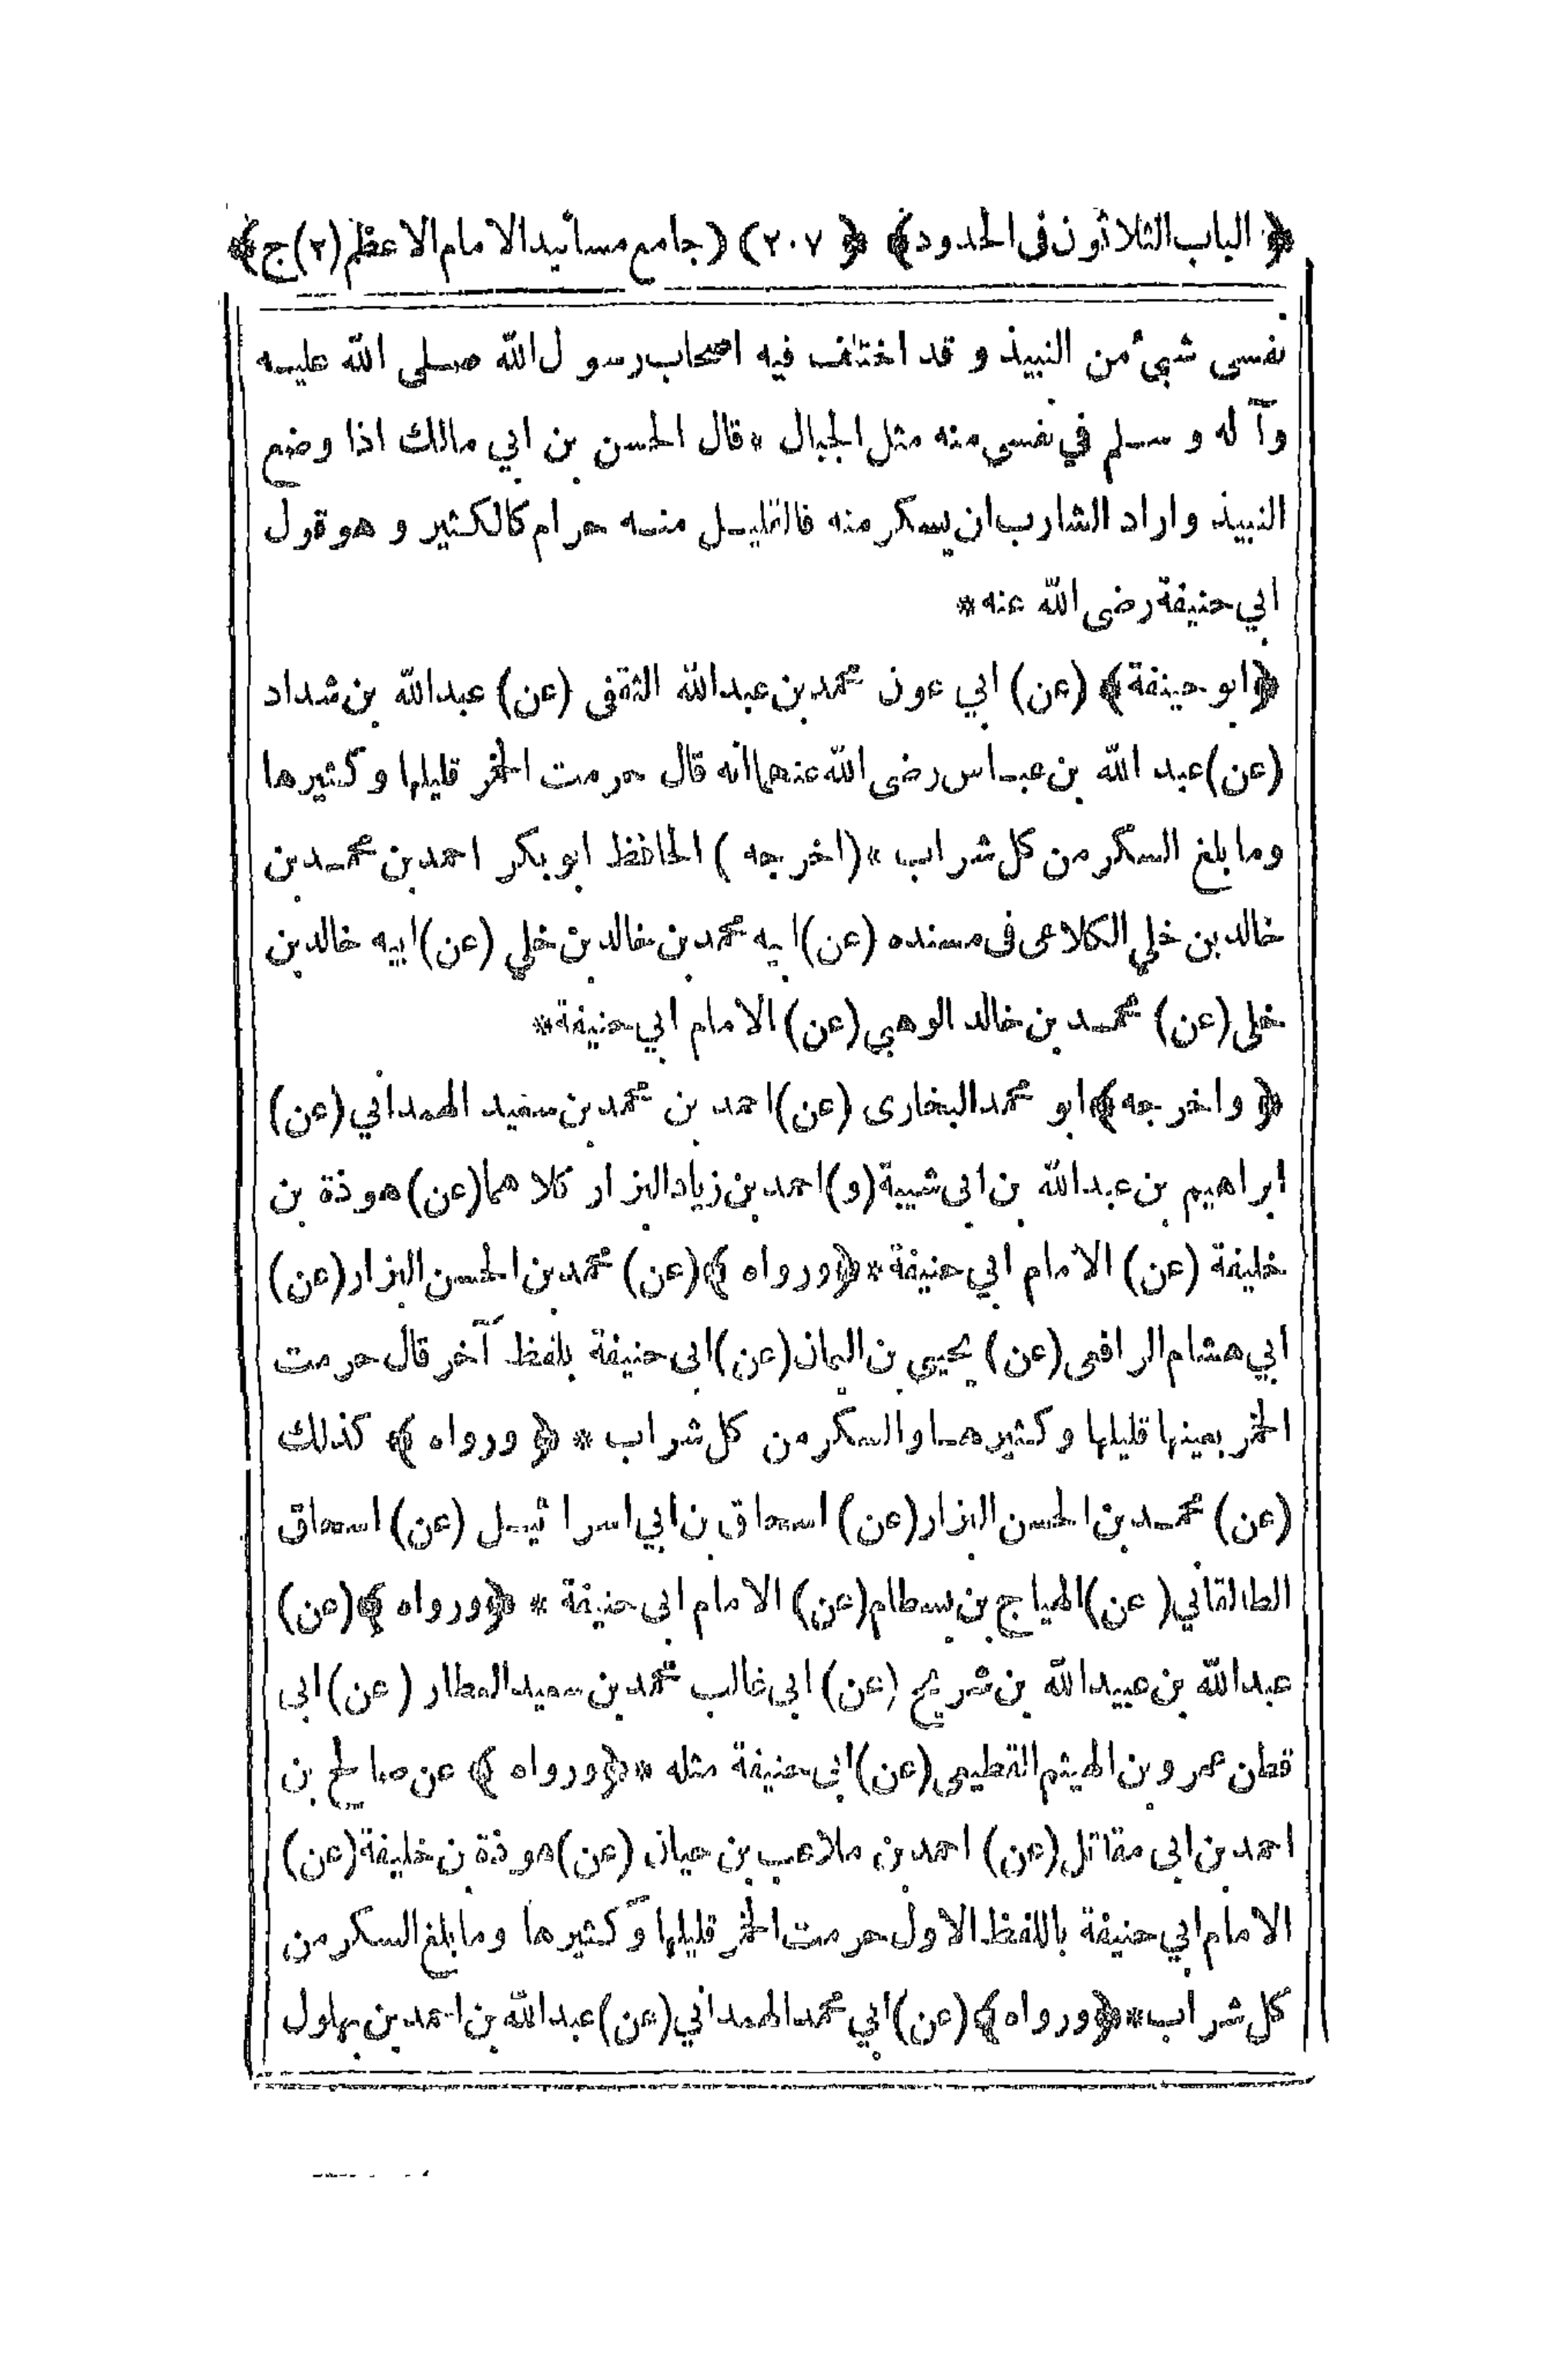 ﴿ الباب الثلاثون فى الحدود ﴾ ﴿ ٢٠٧ ) ( جامع مسانيد الامام الاعظم (٢) ج ﴾
نفسى شئ من النبيذ و قد اختلف فيه اصحاب رسو ل الله صلى الله عليه
وآ له و سلم في نفسى منه مثل الجبال * قال الحسن بن ابي مالك اذا وضع
النبيذ واراد الشارب ان يسكر منه فالقليل منه حرام كالكثير و هو قول
ابي حنيفة رضى الله عنه *
﴿ ابو حنيفة ﴾ (عن) ابي عون محمد بن عبد الله الثقفى (عن) عبد الله بن شداد
(عن) عبد الله بن عباس رضى الله عنهما انه قال حرمت الخمر قليلها و كثيرها
وما بلغ السكر من كل شراب * (اخرجه) الحافظ ابو بكر احمد بن محمد بن
خالد بن خلي الكلاعى فى مسنده (عن) ابيه محمد بن خالد بن خلي (عن) ابيه خالد بن
خلى (عن) محمد بن خالد الوهبي (عن) الامام ابي حنيفة *
﴿ واخرجه ﴾ ابو محمد البخارى (عن) احمد بن محمد بن سعيد الهمداني (عن)
ابراهيم بن عبد الله بن ابى شيبة (و) احمد بن زياد البزار كلاهما (عن) هوذة بن
خليفة (عن) الامام ابي حنيفة * ﴿ ورواه ﴾ (عن) محمد بن الحسن البزار (عن)
ابي هشام الرافعى (عن) يحيى بن اليمان (عن) ابى حنيفة بلفظ آخر قال حرمت
الخمر بعينها قليلها و كثيرها والسكر من كل شراب * ﴿ ورواه ﴾ كذلك
(عن) محمد بن الحسن البزار (عن) اسحاق بن ابي اسرائيل (عن) اسحاق
الطالقاني (عن) الهياج بن بسطام (عن) الامام ابى حنيفة * ﴿ ورواه ﴾ (عن)
عبد الله بن عبيد الله بن شريح (عن) ابى غالب محمد بن سعيد العطار (عن) ابى
قطن عمرو بن الهيثم القطيعى (عن) ابى حنيفة مثله * ﴿ ورواه ﴾ عن صالح بن
احمد بن ابى مقاتل (عن) احمد بن ملاعب بن حيان (عن) هوذة بن خليفة (عن)
الامام ابي حنيفة باللفظ الاول حرمت الخمر قليلها و كثيرها وما بلغ السكر من
كل شراب * ﴿ ورواه ﴾ (عن) ابي محمد الهمداني (عن) عبد الله بن احمد بن بهلول